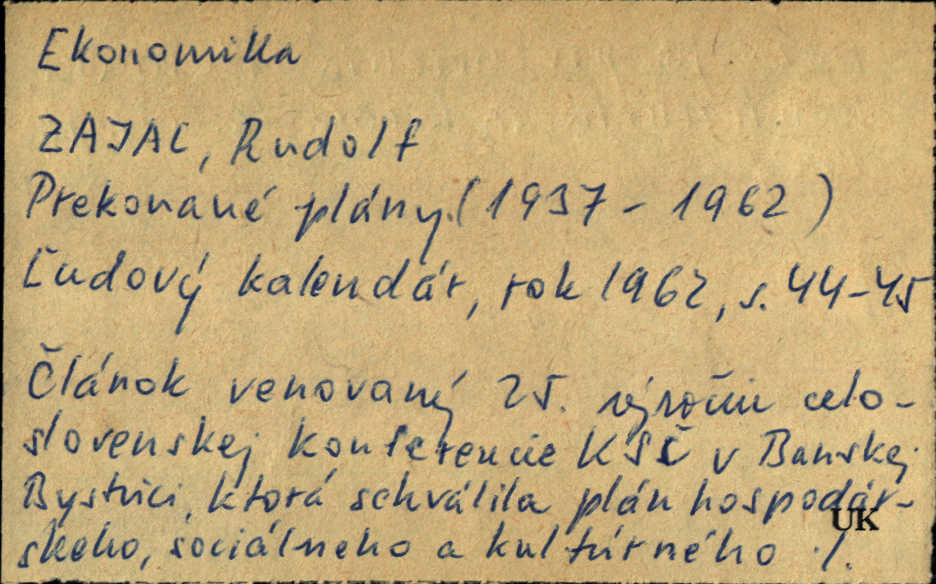 Ekonomika
ZAJAC, Rudolf
Prekonané plány. (1937 - 1962)
Ľudový kalendár, rok 1962, s. 44-45
Článok venovaný 25. výročiu celo-
slovenskej konferencie KSČ v Banskej
Bystrici, ktorá schválila plán hospodár-
skeho, sociálneho a kultúrneho ./.
UK